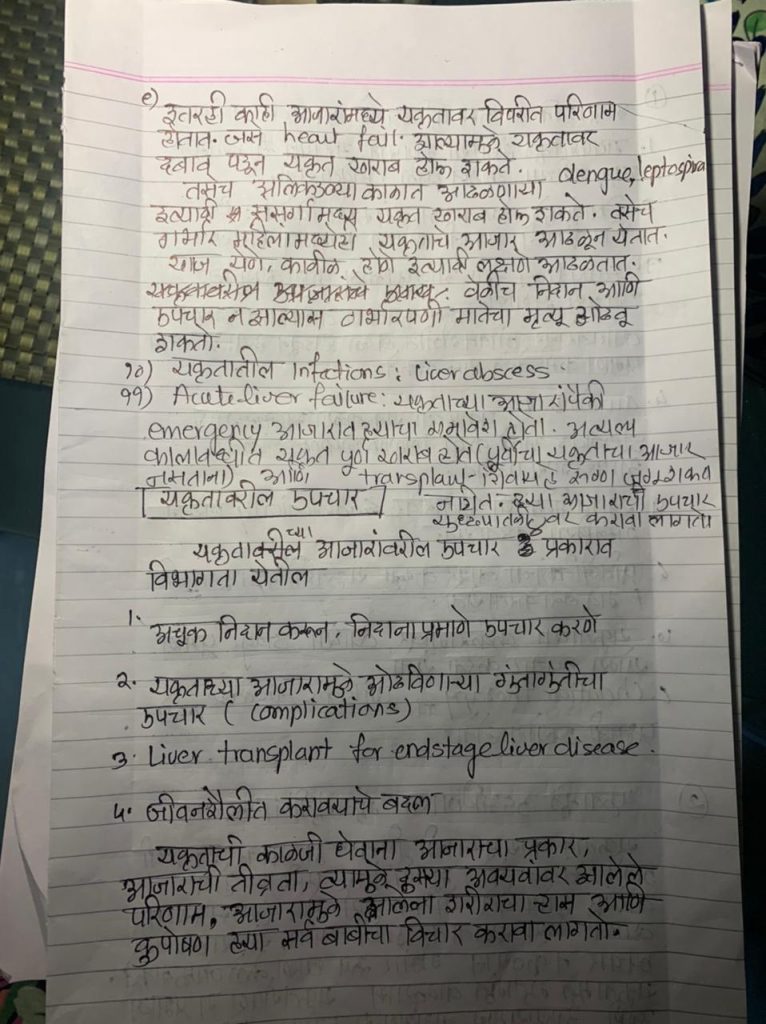 ९) इतरही काही आजारांमध्ये यकृतावर विपरीत परिणाम
होतात. जसे heart fail. झाल्यामुळे यकृतावर
दबाव पडून यकृत खराब होऊ शकते.
तसेच अलिकडच्या काळात आढळणाऱ्या dengue, leptospira
इत्यादी संसर्गामध्ये यकृत खराब होऊ शकते. तसेच
गर्भार महिलांमध्येही यकृताचे आजार आढळून येतात.
खाज येणे, कावीळ होणे इत्यादी लक्षणे आढळतात.
वेळीच निदान आणि
उपचार न झाल्यास गर्भारपणी मातेचा मृत्यू ओढवू
शकतो.
१०) यकृतातील Infections: Liver abscess
११) Acute liver failure: यकृताच्या आजारांपैकी
emergency आजारात ह्याचा समावेश होतो. अत्यल्प
कालावधीत यकृत पूर्ण खराब होते (पूर्वीचा यकृताचा आजार
नसताना) आणि transplant शिवाय हे रुग्ण जगू शकत
नाहीत. ह्या आजाराचा उपचार
युध्दपातळीवर करावा लागतो
यकृतावरील उपचार
यकृताच्या आजारांवरील उपचार प्रकारात
विभागता येतील
1. अचूक निदान करून, निदानाप्रमाणे उपचार करणे
२. यकृताच्या आजारामुळे ओढविणाऱ्या गुंतागुंतीचा
उपचार (Complications)
3. Liver transplant for endstage liver disease.
४. जीवनशैलीत करावयाचे बदल
यकृताची काळजी घेताना आजाराचा प्रकार,
आजाराची तीव्रता, त्यामुळे दुसऱ्या अवयवावर आलेले
परिणाम, आजारामुळे झालेला शरीराचा ऱ्हास आणि
कुपोषण ह्या सर्व बाबींचा विचार करावा लागतो.